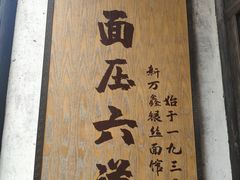 始于一九三
新万鑫银丝面馆
面压六